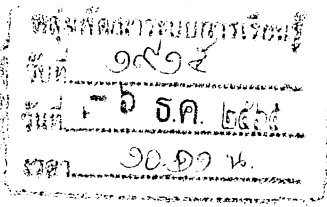 กลุ่มพัฒนาระบบการเรียนรู้
รับที่ ๑๙๑๕
วันที่ - ๖ ธ.ค. ๒๕๖๕
เวลา ๑๐.๑๑ น.